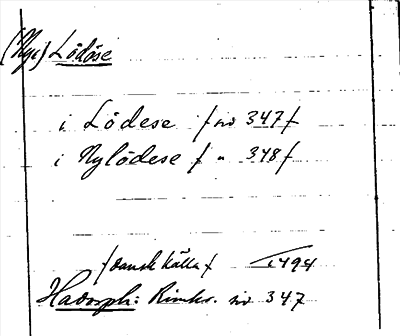 (Nya) Lödöse
i Lödese / nr 347 /
i Nylödese / " 348 /
/ dansk källa / 1494
Hadorph: Rimkr. nr 347